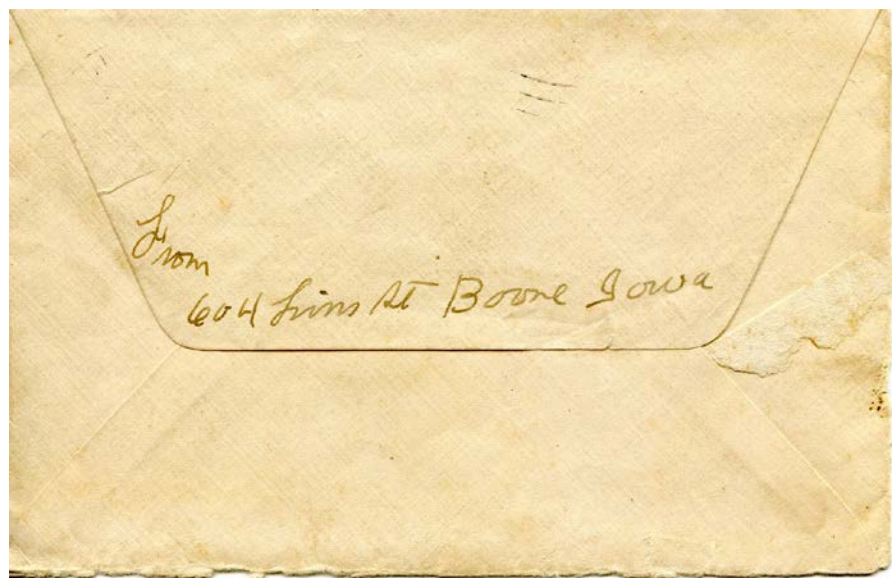 From
604 Linn St Boone Iowa